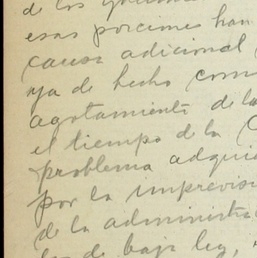 de los
esas porciones han
causa adicional
ya de hecho com
agotamiento de la
el tiempo de la C
problema adqui
por la imprevis
de la administra
de baja ley,